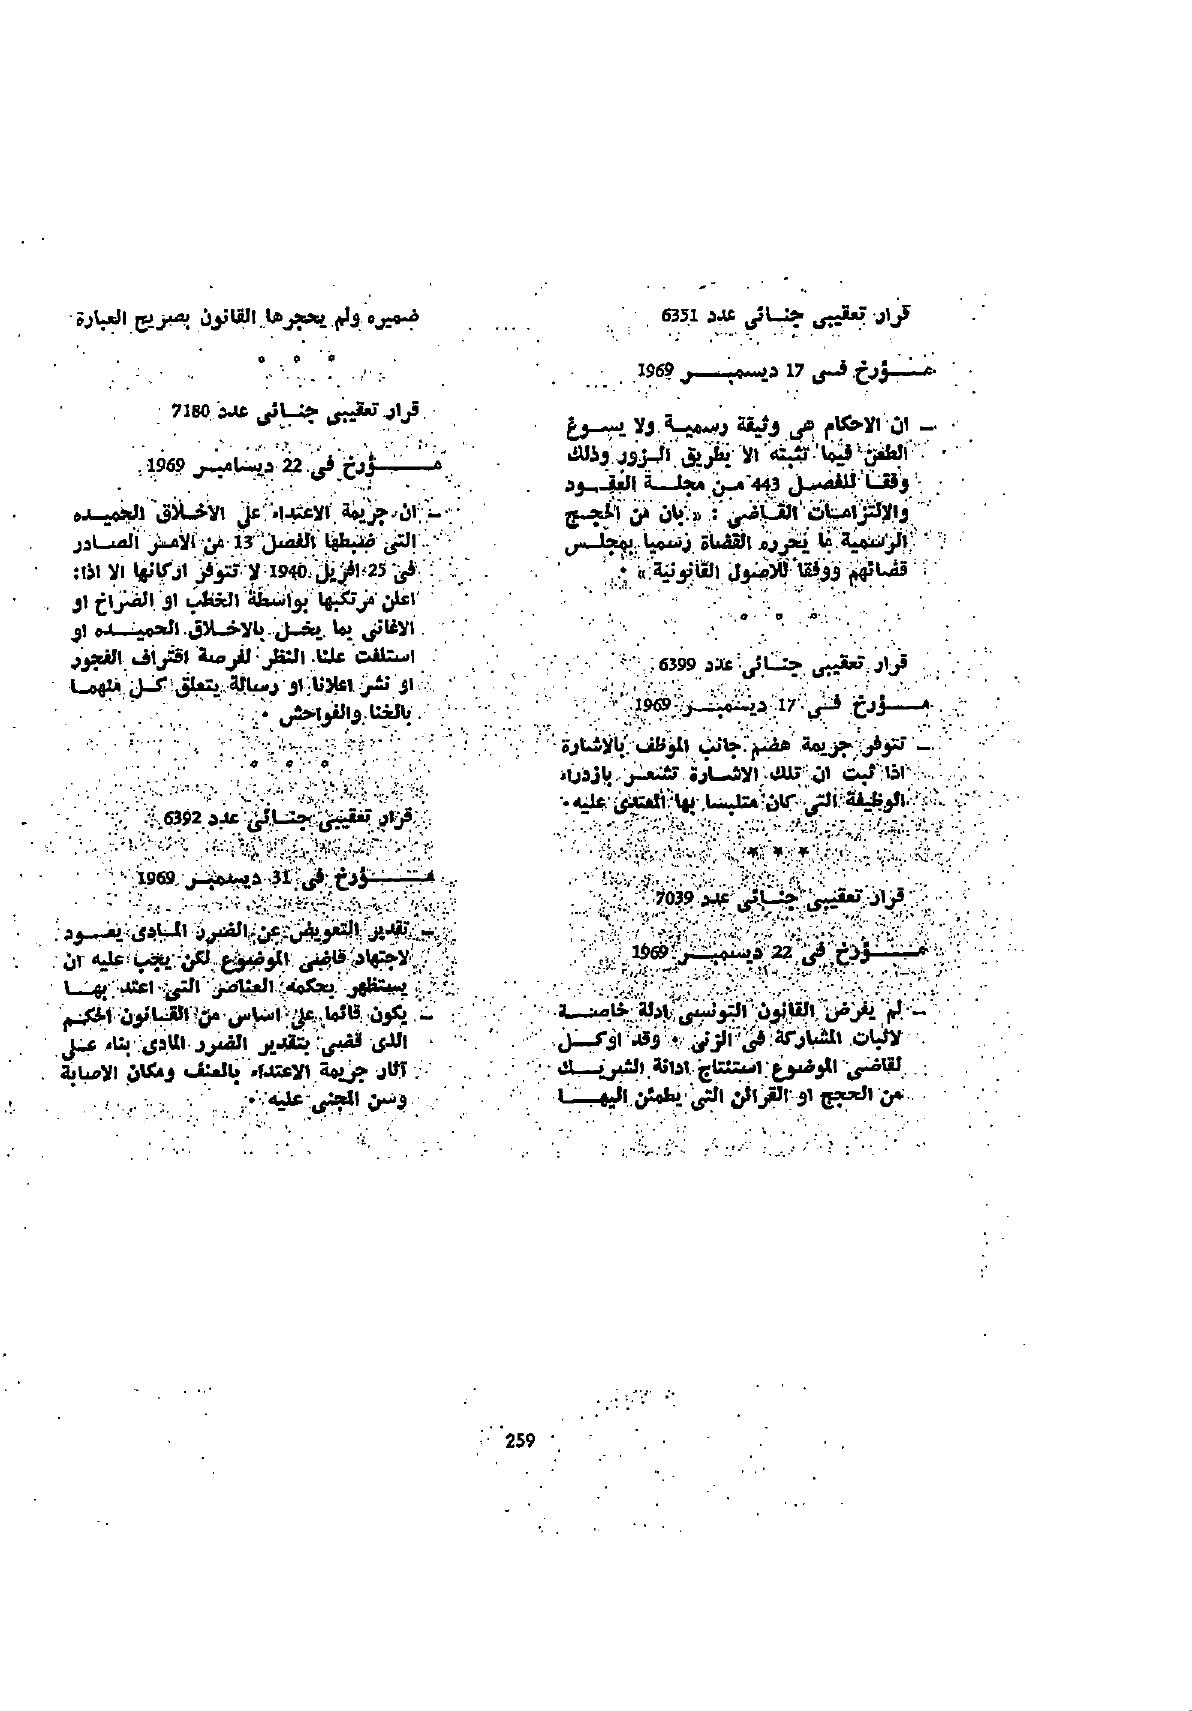 قرار تعقيبى جنائى عدد 6351
مؤرخ فى 17 ديسمبر 1969
— ان الاحكام هى وثيقة رسمية ولا يسوغ
الطعن فيما تثبته الا بطريق الزور وذلك
وفقا للفصل 443 من مجلة العقود
والالتزامات القاضى : « بان من الحجج
الرسمية ما يحرره القضاة رسميا بمجلس
قضائهم ووفقا للاصول القانونية » .
° ° °
قرار تعقيبى جنائى عدد 6399
مؤرخ فى 17 ديسمبر 1969
— تتوفر جريمة هضم جانب الموظف بالاشارة
اذا ثبت ان تلك الاشارة تشعر بازدراء
الوظيفة التى كان متلبسا بها المعتدى عليه .
* * *
قرار تعقيبى جنائى عدد 7039
مؤرخ فى 22 ديسمبر 1969
— لم يفرض القانون التونسى ادلة خاصة
لاثبات المشاركة فى الزنى . وقد اوكل
لقاضى الموضوع استنتاج ادانة الشريك
من الحجج او القرائن التى يطمئن اليها
ضميره ولم يحجرها القانون بصريح العبارة
° ° °
قرار تعقيبى جنائى عدد 7180
مؤرخ فى 22 ديسامبر 1969
— ان جريمة الاعتداء على الاخلاق الحميده
التى ضبطها الفصل 13 من الامر الصادر
فى 25 افريل 1940 لا تتوفر اركانها الا اذا :
اعلن مرتكبها بواسطة الخطب او الصراخ او
الاغانى بما يخل بالاخلاق الحميده او
استلفت علنا النظر لفرصة اقتراف الفجور
او نشر اعلانا او رسالة يتعلق كل منهما
بالخنا والفواحش .
° ° °
قرار تعقيبى جنائى عدد 6392
مؤرخ فى 31 ديسمبر 1969
— تقدير التعويض عن الضرر المادى يعود
لاجتهاد قاضى الموضوع لكن يجب عليه ان
يستظهر بحكمه العناصر التى اعتد بها
— يكون قائما على اساس من القانون الحكم
الذى قضى بتقدير الضرر المادى بناء على
آثار جريمة الاعتداء بالعنف ومكان الاصابة
وسن المجنى عليه .
259